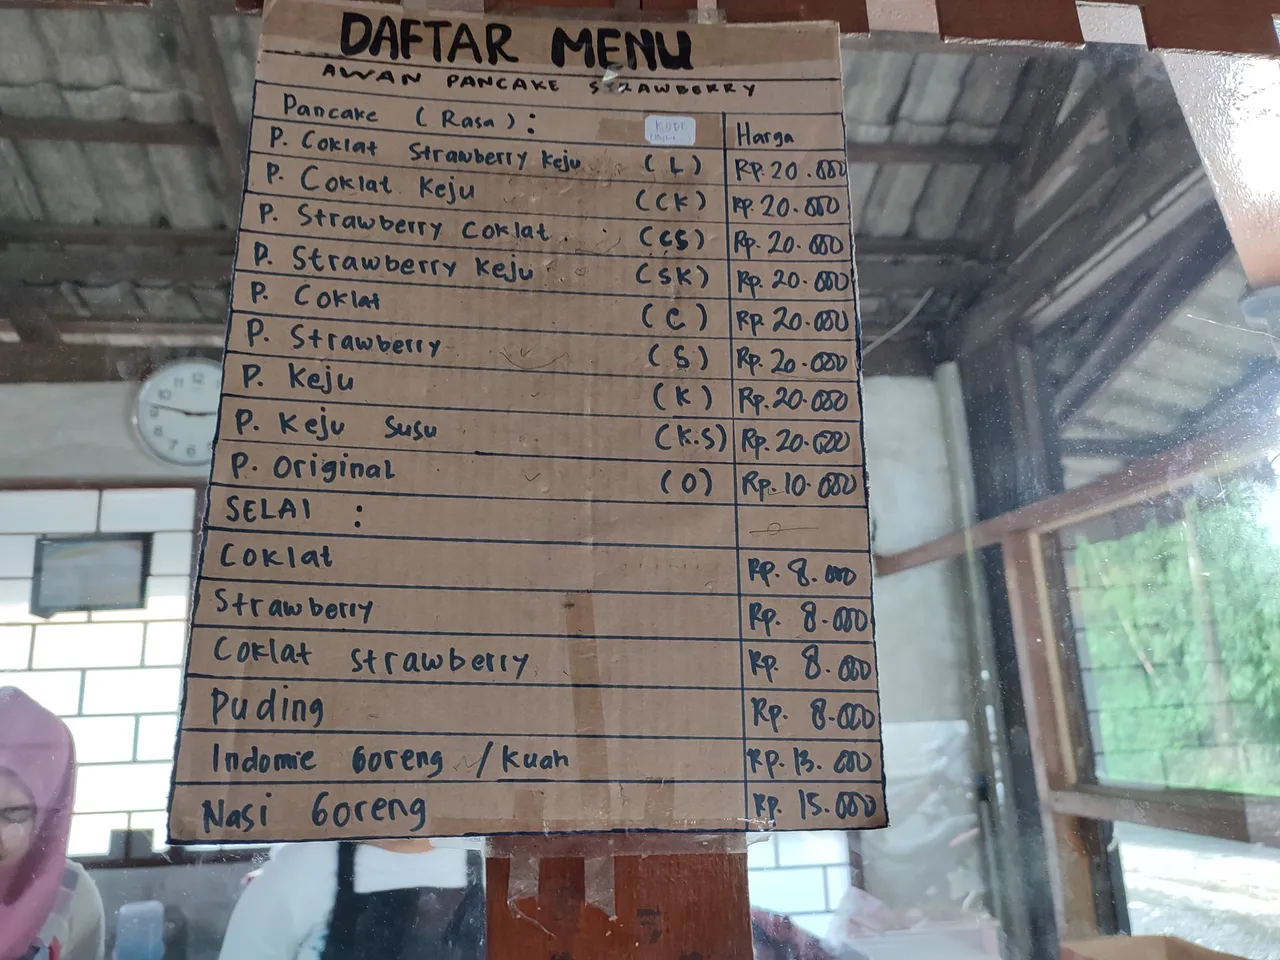 DAFTAR MENU
AWAN PANCAKE STRAWBERRY
Pancake (Rasa) : KODE Harga
P. Coklat Strawberry Keju (L) Rp. 20.000
P. Coklat Keju (CK) Rp. 20.000
P. Strawberry Coklat (CS) Rp. 20.000
P. Strawberry Keju (SK) Rp. 20.000
P. Coklat (C) Rp. 20.000
P. Strawberry (S) Rp. 20.000
P. Keju (K) Rp. 20.000
P. Keju Susu (K.S) Rp. 20.000
P. Original (O) Rp. 10.000
SELAI :
Coklat Rp. 8.000
Strawberry Rp. 8.000
Coklat Strawberry Rp 8.000
Puding Rp. 8.000
Indomie Goreng / Kuah Rp. 13.000
Nasi Goreng Rp. 15.000